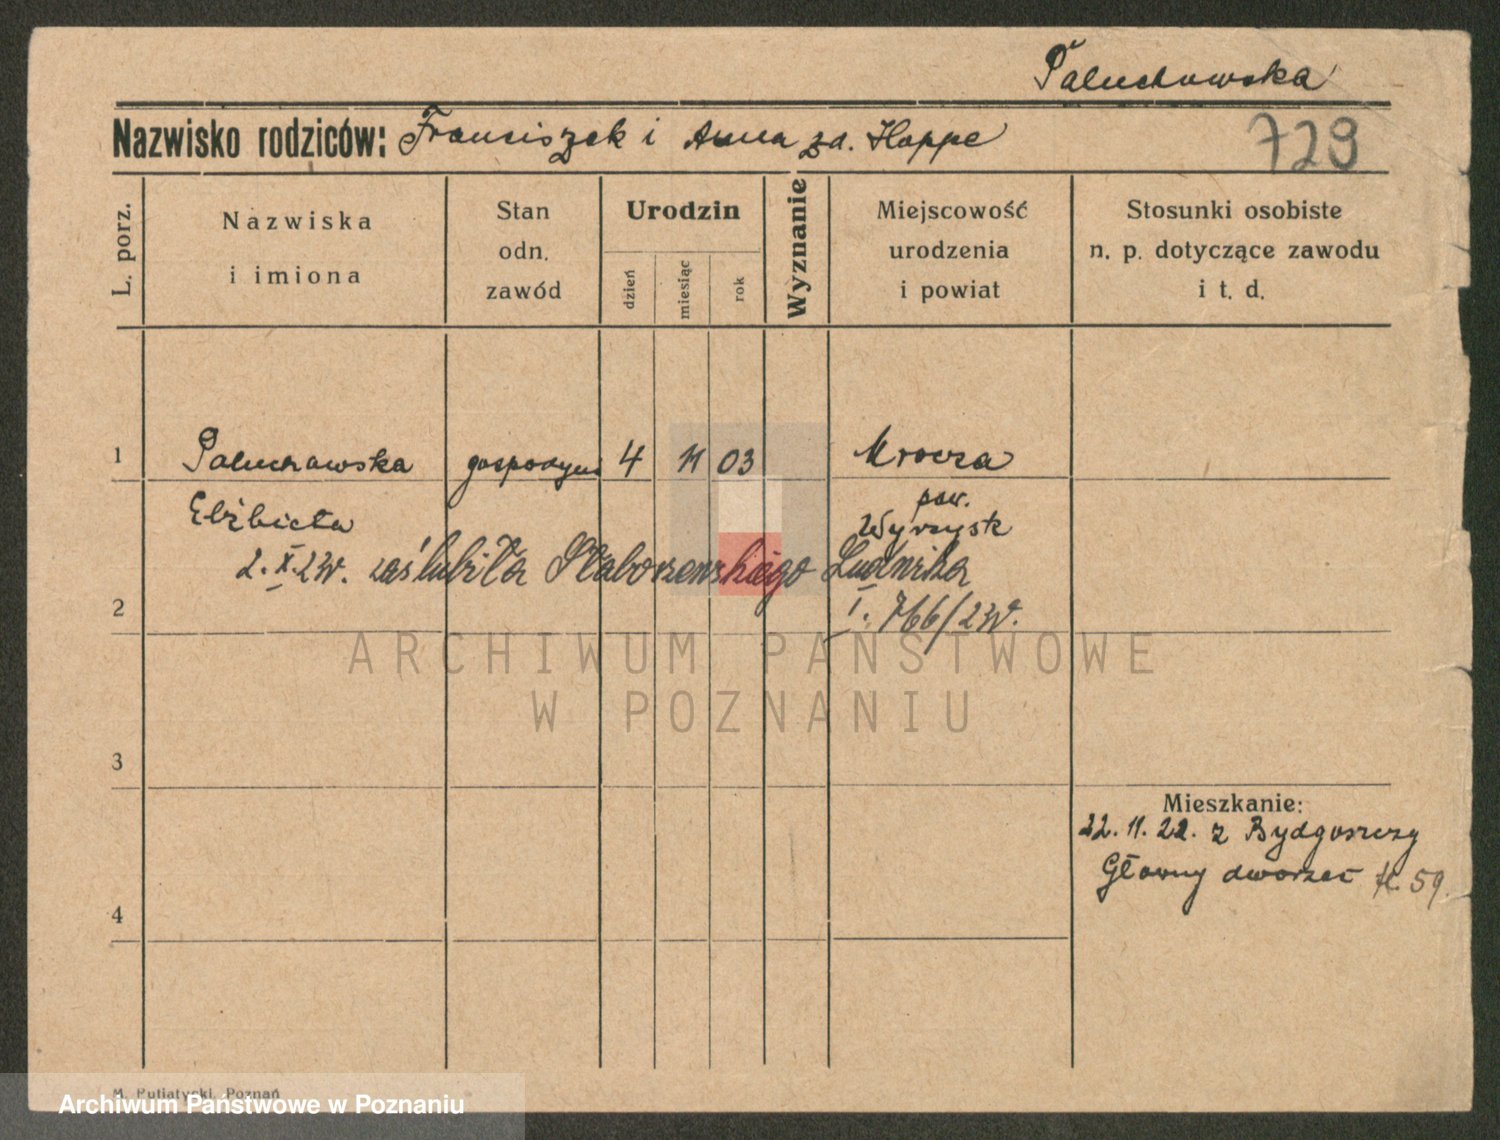 Paluchowska
Nazwisko rodziców: Franciszek i Anna zd. Hoppe
729
L. porz.
Nazwiska
i imiona
Stan
odn.
zawód
Urodzin
dzień
miesiąc
rok
Wyznanie
Miejscowość
urodzenia
i powiat
Stosunki osobiste
n. p. dotyczące zawodu
i t. d.
1
Paluchowska
gospodyni
4
11
03
Mrocza
Elżbieta
pow.
Wyrzysk
2. X. 23r. zaślubiła Ludwika
2
I. 766/23r.
ARCHIWUM PAŃSTWOWE
W POZNANIU
3
Mieszkanie:
22. 11. 22. z Bydgoszczy
Główny dworzec 59
4
M. Putiatycki, Poznań
Archiwum Państwowe w Poznaniu